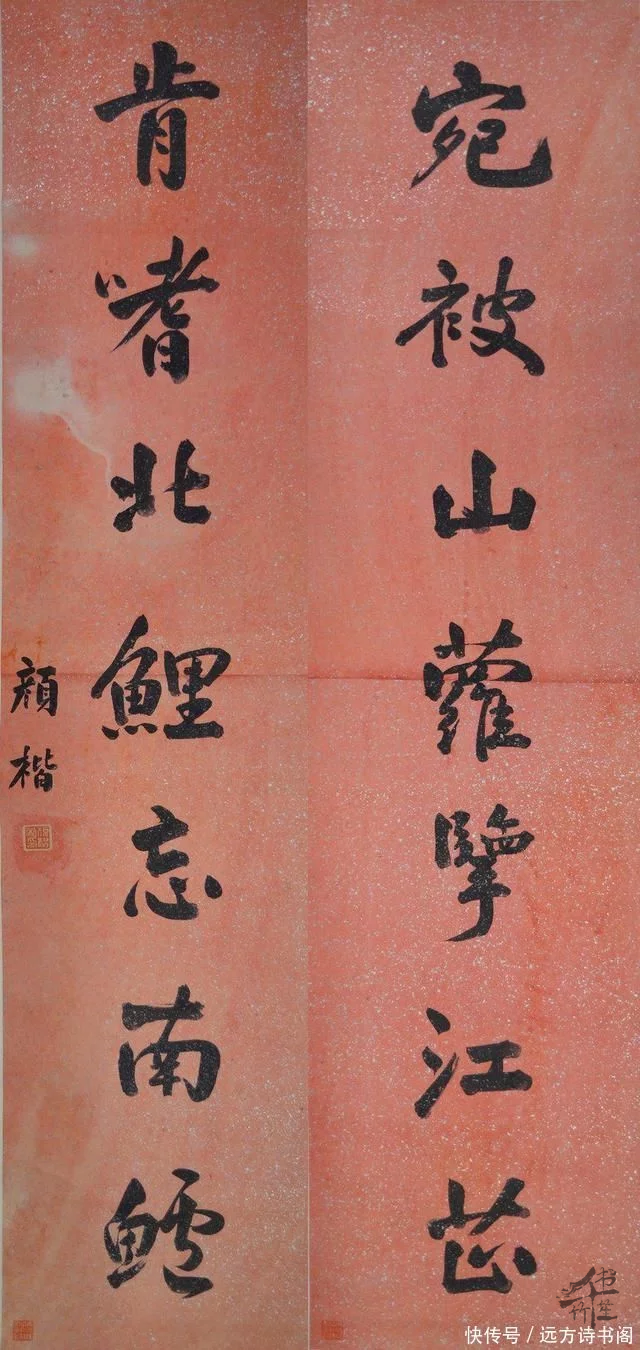 宛被山蘿擥江芷
肯嗜北鯉忘南鱸
顏楷
快传号/远方诗书阁